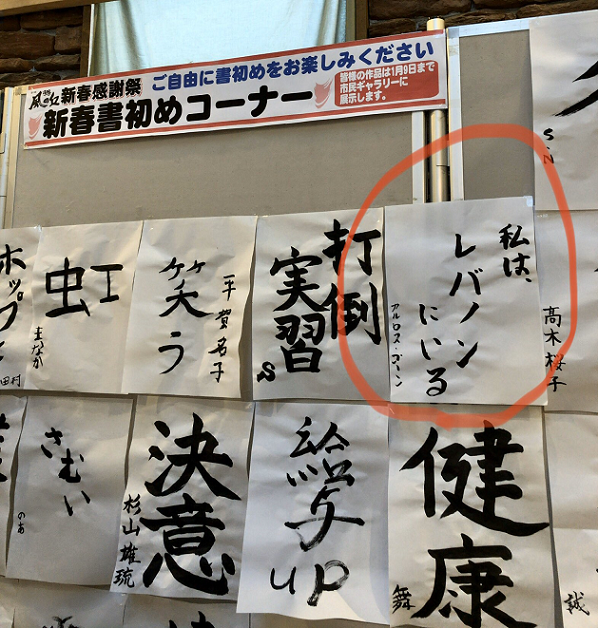 風の丘 新春感謝祭
ご自由に書初めをお楽しみください
新春書初めコーナー
皆様の作品は1月9日まで
市民ギャラリーに
展示します。
S.N
私は、
レバノン
にいる
アルロス・ゴーン
高木桜子
打倒
実習
S
笑う
平賀名子
虹
まなか
ホップ
田村
健康
舞
給与
up
決意
杉山雄琉
さむい
のあ
誠